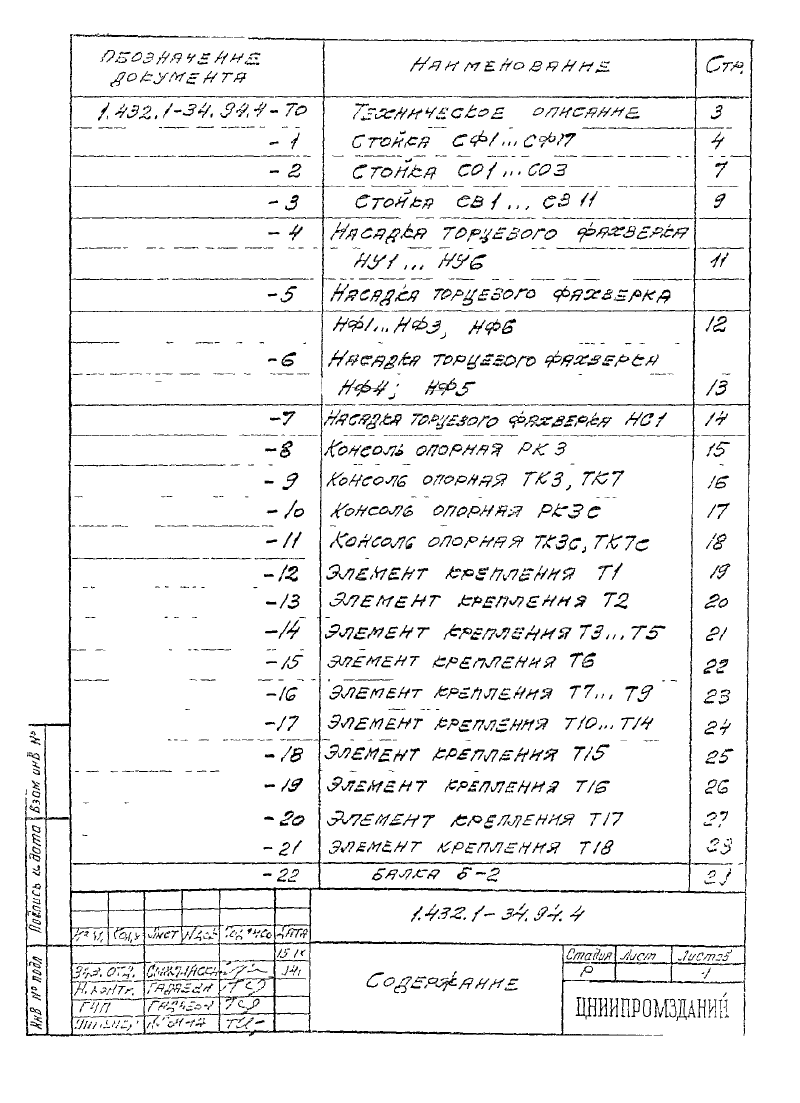 Обозначение документа Наименование Стр.
1.432.1-34.94.4-ТО Техническое описание 3
-1 Стойка СФ1...СФ17 4
-2 Стойка СО1...СО3 7
-3 Стойка СВ1...СВ11 9
-4 Насадка торцевого фахверка
НУ1... НУ6 11
-5 Насадка торцевого фахверка
НФ1...НФ3, НФ6 12
-6 Насадка торцевого фахверка
НФ4; НФ5 13
-7 Насадка торцевого фахверка НС1 14
-8 Консоль опорная РК3 15
-9 Консоль опорная ТК3, ТК7 16
-10 Консоль опорная РК3с 17
-11 Консоль опорная ТК3с, ТК7с 18
-12 Элемент крепления Т1 19
-13 Элемент крепления Т2 20
-14 Элемент крепления Т3...Т5 21
-15 Элемент крепления Т6 22
-16 Элемент крепления Т7... Т9 23
-17 Элемент крепления Т10...Т14 24
-18 Элемент крепления Т15 25
-19 Элемент крепления Т16 26
-20 Элемент крепления Т17 27
-21 Элемент крепления Т18
-22 Балка Б-2
Взам инв №
Подпись и дата
Инв № подл
1.432.1-34.94.4
Кол.у Лист Дата
Зав. отд.
Н. контр.
ГИП
Содержание
Стадия Лист Листов
Р 1
ЦНИИПРОМЗДАНИЙ